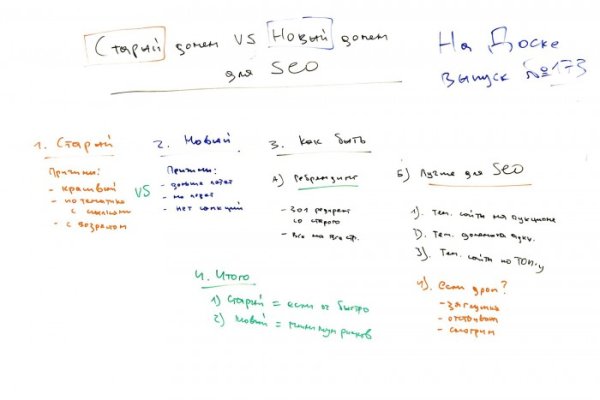 Старый домен VS Новый домен
для SEO
На Доске
выпуск №173
1. Старый
Причины:
- красивый
- по тематике
с ссылками
- с возрастом
VS
2. Новый
Причины:
- дольше
- не
- нет санкций
3. Как быть
А) Ребрендинг
- 301 редирект
со старого
- Все на все стр.
Б) Лучше для SEO
1). Тем. сайты на аукционе
2). Тем. домены аукц.
3). Тем. сайты по ТОП-у
4). Если дроп?
- заглушка
- отстаиваем
- смотрим
4. Итого
1) Старый = если ог быстро
2) Новый = минимум рисков